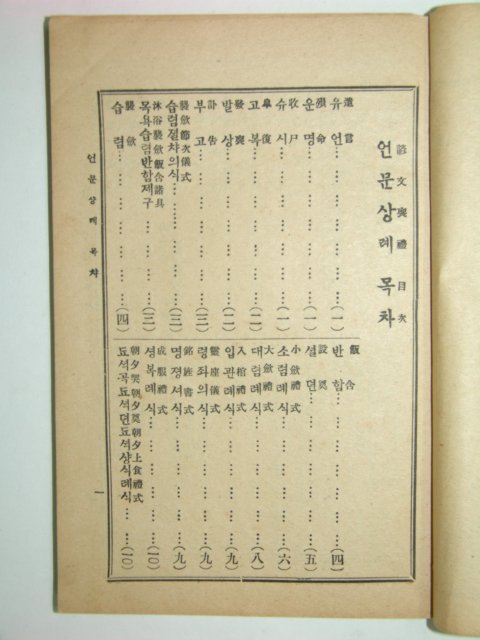 諺文喪禮 目次
언문상례 목차
遺言
유언……………(一)
殞命
운명……………(一)
收尸
슈시……………(一)
皐復
고복……………(二)
發喪
발상……………(二)
訃告
부고……………(二)
襲斂節次儀式
습렴졀챠의식……………(三)
沐浴襲斂飯含諸具
목욕습렴반함졔구……………(三)
襲斂
습렴……………(四)
飯含
반함……………(四)
設奠
셜뎐……………(五)
小斂禮式
소렴례식……………(六)
大斂禮式
대렴례식……………(八)
入棺禮式
입관례식……………(九)
靈座儀式
령좌의식……………(九)
銘旌書式
명졍셔식……………(九)
成服禮式
셩복례식……………(一〇)
朝夕哭朝夕奠朝夕上食禮式
됴셕곡됴셕뎐됴셕샹식례식……(一〇)
언문상례 목챠
一